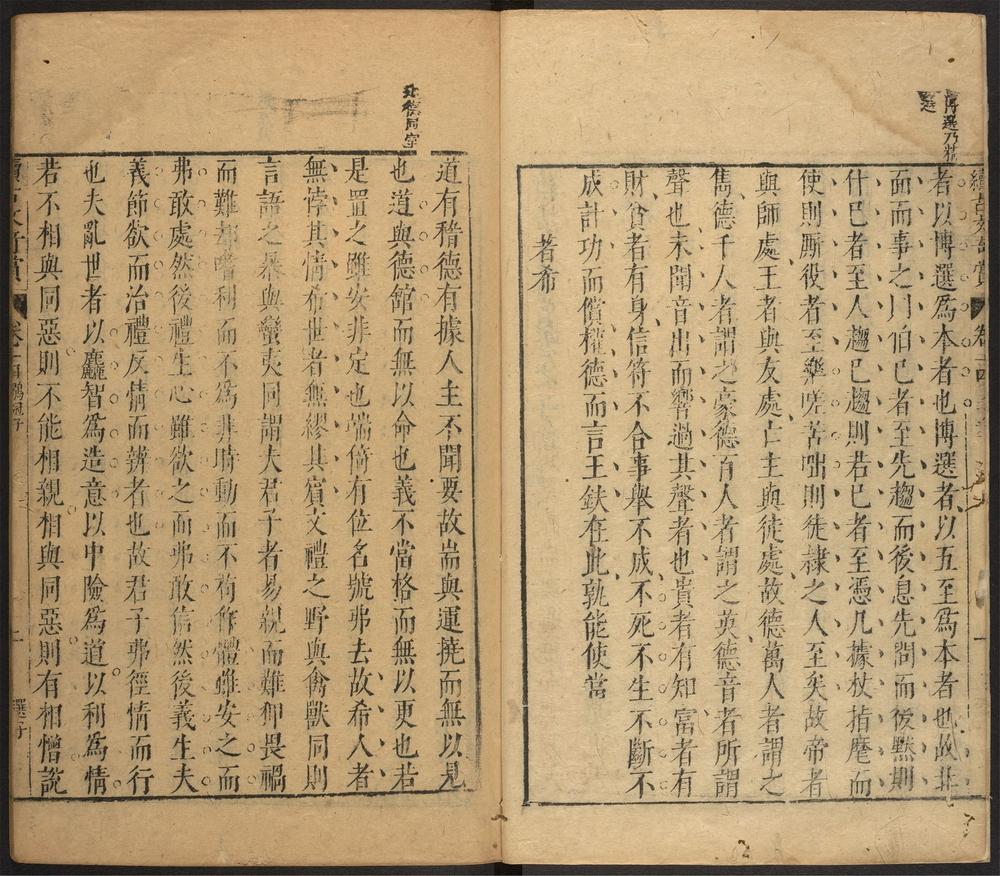 者以博選爲本者也博選者以五至爲本者也故北
面而事之則伯己者至先趨而後息先問而後默則
什己者至人趨己趨則若己者至憑几據杖指麾而
使則厮役者至樂嗟苦咄則徒隷之人至矣故帝者
與師處王者與友處亡主與徒處故德萬人者謂之
雋德千人者謂之豪德百人者謂之英德音者所謂
聲也未聞音出而響過其聲者也貴者有知富者有
財貧者有身信符不合事舉不成不死不生不斷不
成計功而償權德而言王鈇在此孰能使當
著希
道有稽德有據人主不聞要故耑與運撓而無以見
也道與德館而無以命也義不當格而無以更也若
是置之雖安非定也端倚有位名號弗去故希人者
無悖其情希世者無繆其賓文禮之野與禽獸同則
言語之暴與蠻夷同謂夫君子者易親而難狎畏禍
而難却嗜利而不爲非時動而不茍作體雖安之而
弗敢處然後禮生心雖欲之而弗敢信然後義生夫
義節欲而治禮反情而辨者也故君子弗徑情而行
也夫亂世者以麤智爲造意以中險爲道以利爲情
若不相與同惡則不能相親相與同惡則有相憎說